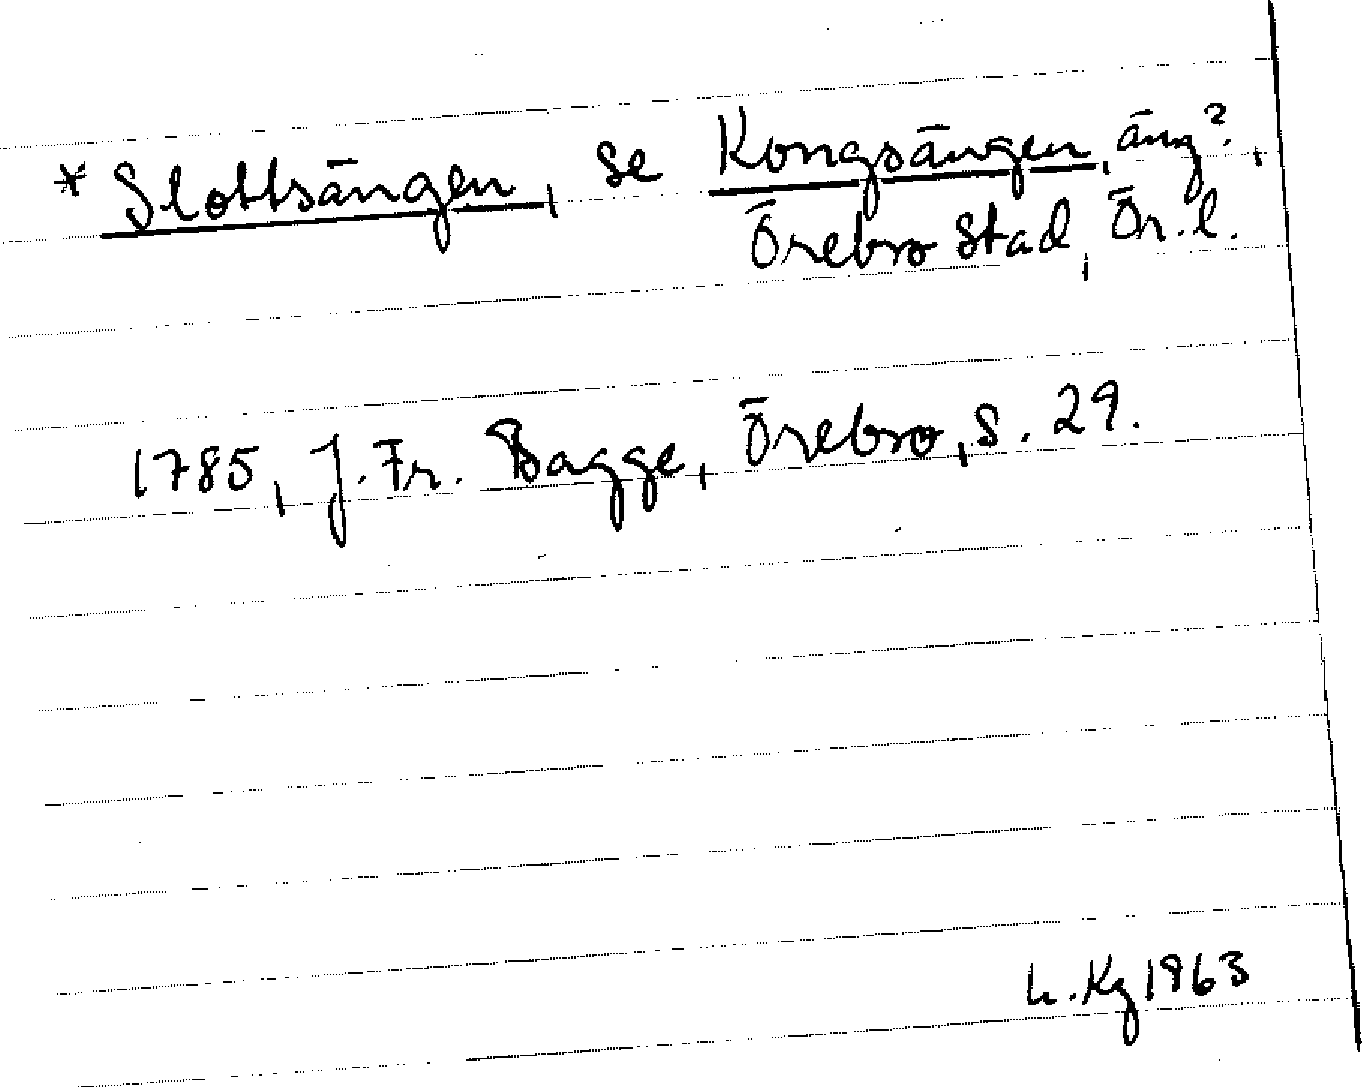 * Slottsängen, se Kongsängen, äng?,
Örebro stad, Ör. l.
1785, J. Fr. Bagge, Örebro, s. 29.
h. Kg 1963